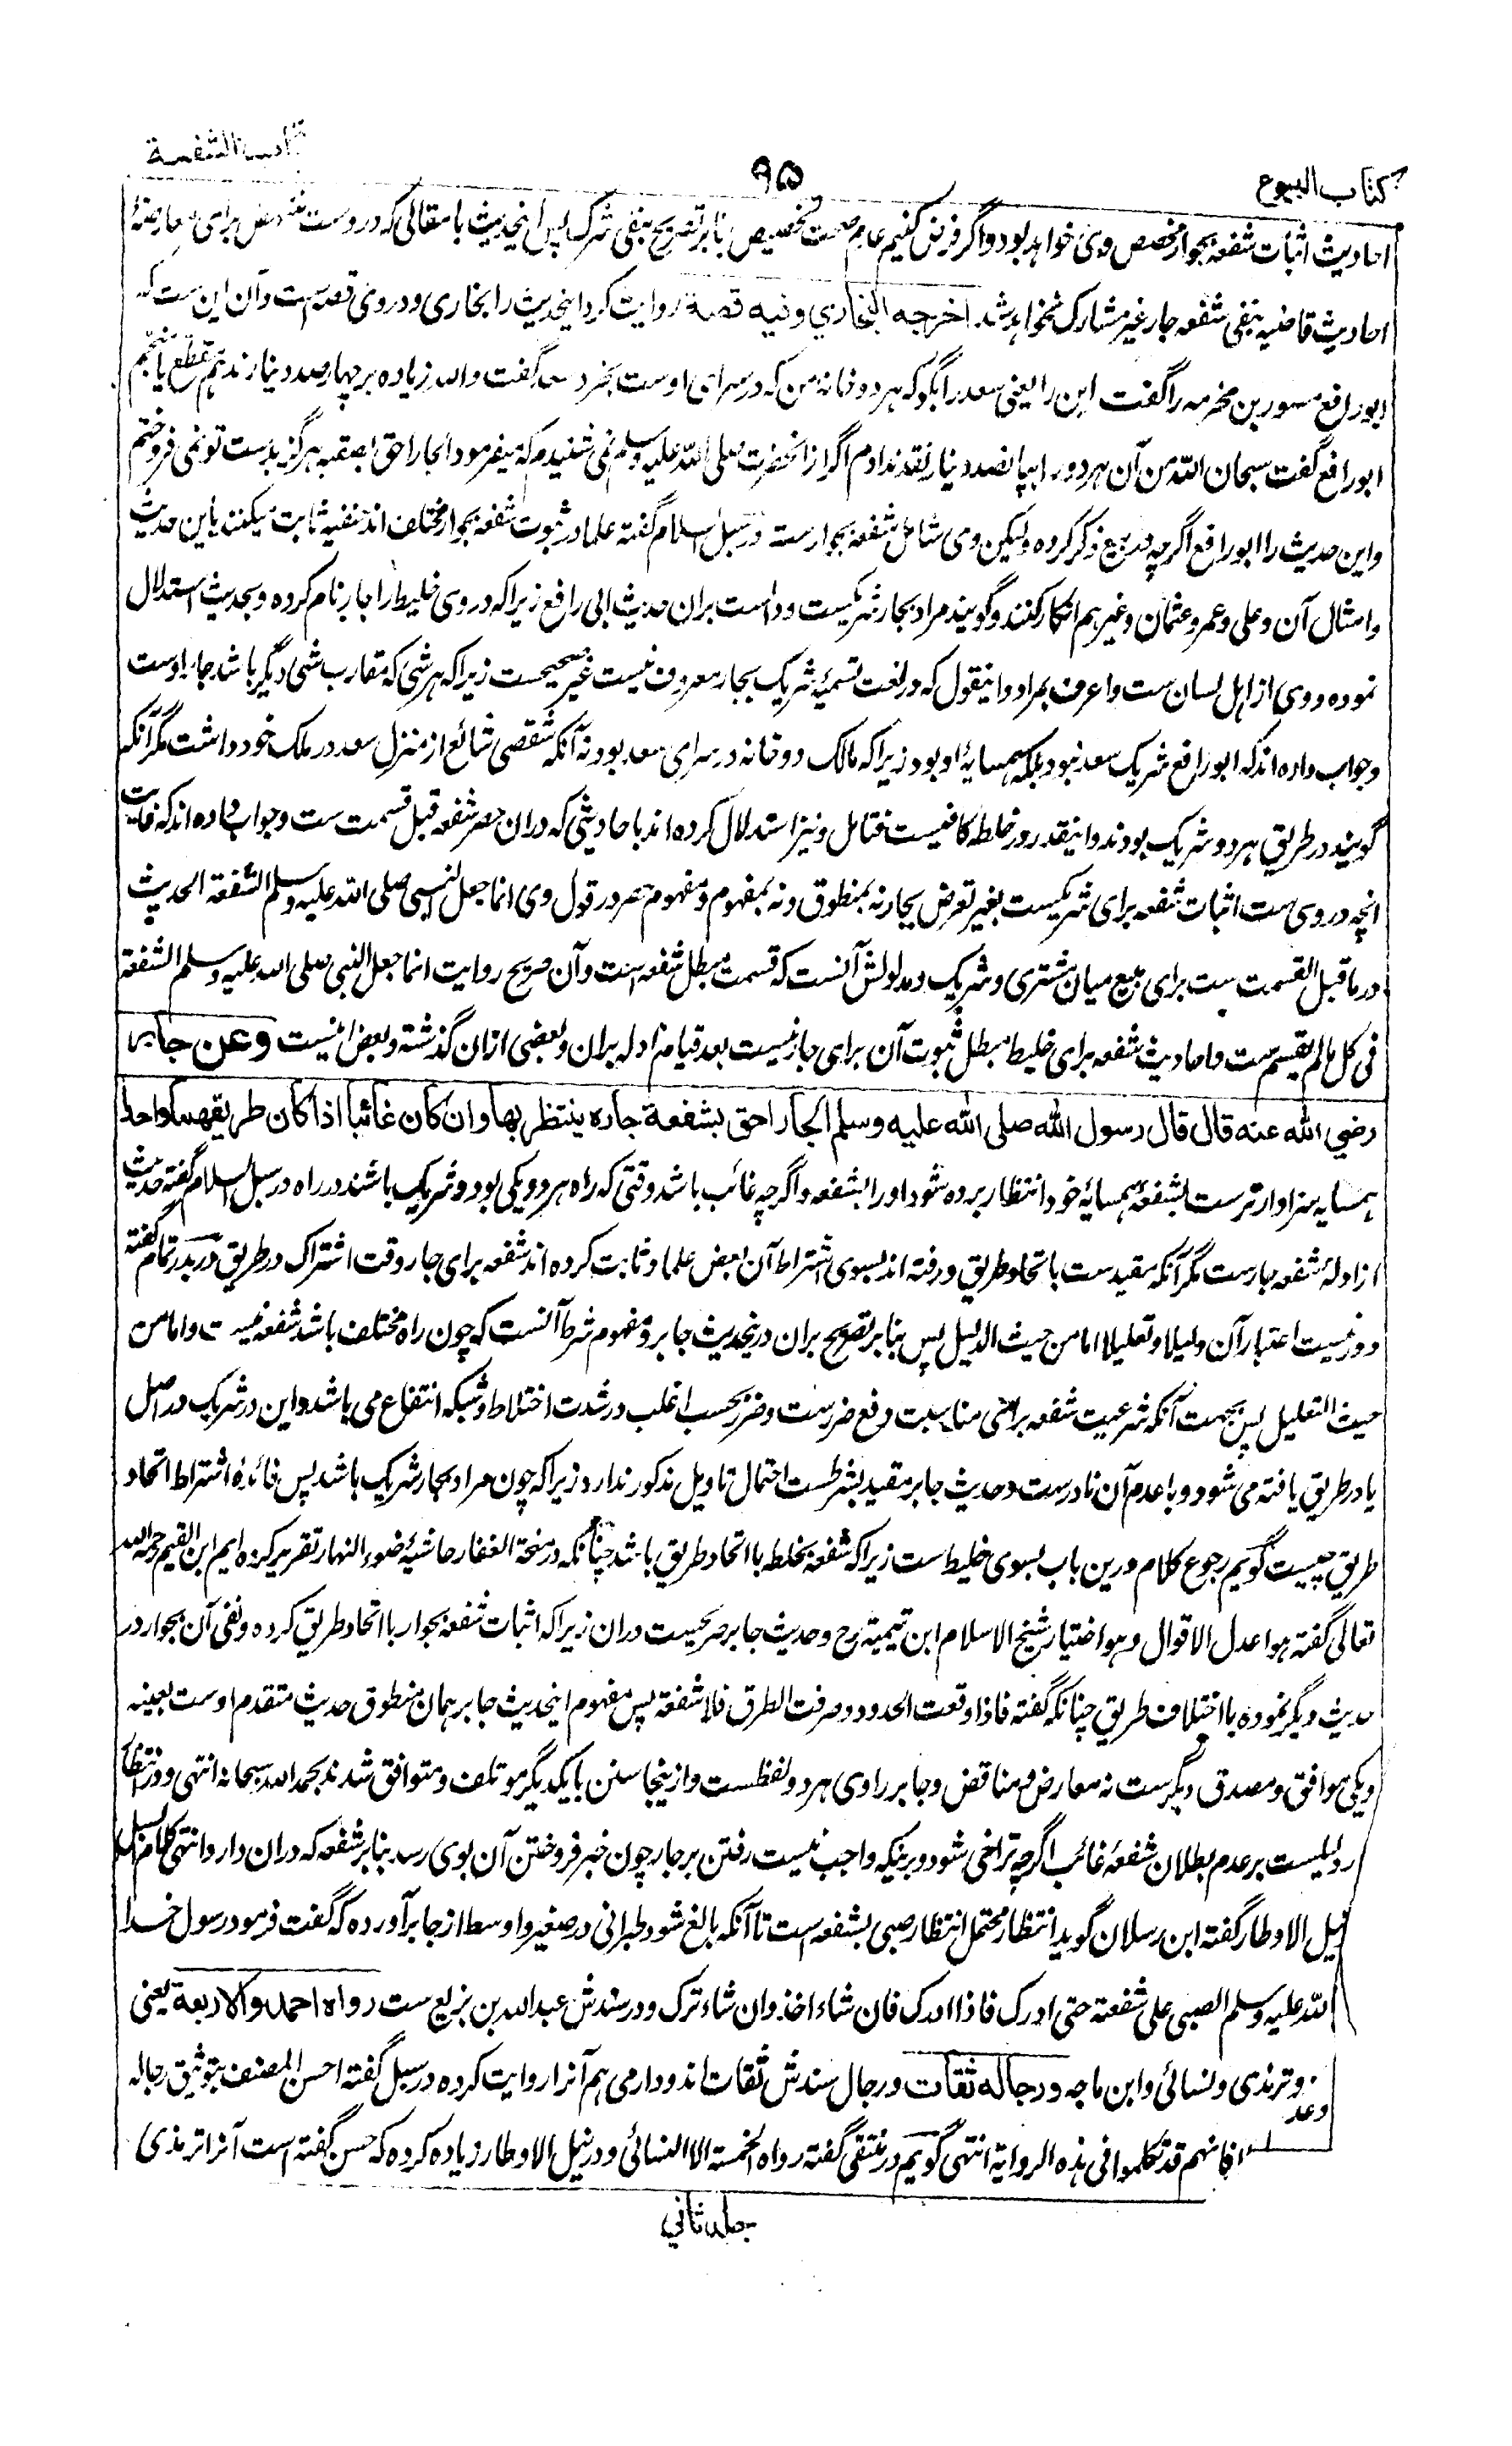 کتاب البیوع
۹۵
باب الشفعة
احادیث اثبات شفعه بجوار مخصص وی خواهد بود و اگر فرض کنیم عدم صحت تخصیص بنا بر تصریح بنفی شرک پس اینحدیث با مقالی که دروست برای معارضهٔ
احادیث قاضیه بنفی شفعه جار غیر مشارک نخواهد شد اخرجه البخاري وفيه قصة روایت کرد اینحدیث را بخاری و در وی قصه است و آن این ست که
ابو رافع مسور بن مخرمه را گفت این را یعنی سعد را بگو که هر دو خانهٔ من که در سرای اوست بخرد سعد گفت والله زیاده بر چهار صد دینار ندهم مقطع یا منجم
ابو رافع گفت سبحان الله من آن هر دو را بپانصد دینار نقد ندادم اگر از آنحضرت صلی الله علیه وسلم نمی شنیدم که میفرمود الجار احق بصقبه هرگز بدست تو نمی فروختم
و این حدیث را ابو رافع اگرچه در بیع ذکر کرده ولیکن وی شامل شفعه بجوارست در سبل السلام گفته علما در ثبوت شفعه بجوار مختلف اند حنفیه ثابت میکنند باین حدیث
و امثال آن و علی و عمر و عثمان و غیر هم انکار کنند و گویند مراد بجار شریکست و دالست بران حدیث ابی رافع زیرا که در وی خلیط را بجار نام کرده و بحدیث استدلال
نموده و وی از اهل لسان ست و اعرف بمراد و اینقول که در لغت تسمیهٔ شریک بجار معروف نیست غیر صحیحست زیرا که هر شی که مقارب شی دیگر باشد جار اوست
و جواب داده اند که ابو رافع شریک سعد نبود بلکه همسایهٔ او بود زیرا که مالک دو خانه در سرای سعد بود نه آنکه شقصی شائع از منزل سعد در ملک خود داشت مگر آنکه
گویند در طریق هر دو شریک بودند و اینقدر در خلطه کافیست فتامل و نیز استدلال کرده اند باحادیثی که دران حصر شفعه قبل قسمت ست و جواب داده اند که غایت
انچه در وی ست اثبات شفعه برای شریکست بغیر تعرض بجار نه بمنطوق و نه بمفهوم و مفهوم حصر در قول وی انما جعل النبی صلی الله علیه وسلم الشفعة الحدیث
در ما قبل القسمت ست برای بیع میان مشتری و شریک و مدلولش آنست که قسمت مبطل شفعه است و آن صریح روایت انما جعل النبی صلی الله علیه وسلم الشفعة
فی کل مالم یقسم ست و احادیث شفعه برای خلیط مبطل ثبوت آن برای جار نیست بعد قیام ادله بران و بعضی ازان گذشته و بعض اینست وعن جابر
رضي الله عنه قال قال رسول الله صلى الله عليه وسلم الجار احق بشفعة جاره ينتظر بها وان كان غائبا اذا كان طريقهما واحدا
همسایه سزاوار ترست بشفعهٔ همسایهٔ خود انتظار برده شود او را بشفعه و اگرچه غائب باشد وقتی که راه هر دو یکی بود و شریک باشند در راه در سبل السلام گفته حدیث
از ادلهٔ شفعه جارست مگر آنکه مقیدست باتحاد طریق و رفته اند بسوی اشتراط آن بعض علما و ثابت کرده اند شفعه برای جار وقت اشتراک در طریق در بدر تمام گفته
دور نیست اعتبار آن دلیلا و تعلیلا اما من حیث الدلیل پس بنا بر تصریح بران در ینحدیث جابر و مفهوم شرط آنست که چون راه مختلف باشد شفعه نیست و اما من
حیث التعلیل پس بجهت آنکه شرعیت شفعه برای مناسبت دفع ضررست و ضرر بحسب اغلب در شدت اختلاط و شبکه انتفاع می باشد و این در شریک در اصل
یا در طریق یافته می شود و با عدم آن نادرست و حدیث جابر مقید بشرطست احتمال تاویل مذکور ندارد زیرا که چون مراد بجار شریک باشد پس فائدهٔ اشتراط اتحاد
طریق چیست گویم رجوع کلام درین باب بسوی خلیط ست زیرا که شفعه بخلطه با اتحاد طریق باشد چنانکه در منحة الغفار حاشیهٔ ضوء النهار تقریر کرده ایم ابن القیم رحمه الله
تعالی گفته هو اعدل الاقوال و هو اختیار شیخ الاسلام ابن تیمیة رح و حدیث جابر صریحست دران زیرا که اثبات شفعه بجوار با اتحاد طریق کرده و نفی آن بجوار در
حدیث دیگر نموده با اختلاف طریق چنانکه گفته فاذا وقعت الحدود و صرفت الطرق فلا شفعة پس مفهوم اینحدیث جابر همان منطوق حدیث متقدم اوست بعینه
و یکی موافق و مصدق دیگرست نه معارض و مناقض و جابر راوی هر دو لفظست و ازینجا سنن با یکدیگر موتلف و متوافق شدند بحمد الله سبحانه انتهی و در انتظار
دلیلست بر عدم بطلان شفعهٔ غائب اگرچه تراخی شود و برینکه واجب نیست رفتن بر جار چون خبر فروختن آن بوی رسد بنا بر شفعه که دران دارد انتهی کلام السبل
نیل الاوطار گفته ابن رسلان گوید انتظار محتمل انتظار صبی بشفعه است تا آنکه بالغ شود طبرانی در صغیر و اوسط از جابر آورده که گفت فرمود رسول خدا
الله علیه وسلم الصبی علی شفعته حتی ادرک فاذا ادرک فان شاء اخذ وان شاء ترک و در سندش عبدالله بن بزیع ست رواه احمد والاربعة یعنی
و ترمذی و نسائی و ابن ماجه ورجاله ثقات و رجال سندش ثقات اند و دارمی هم آنرا روایت کرده در سبل گفته احسن المصنف بتوثیق رجاله
وعد
فانهم قد تکلموا فی هذه الروایة انتهی گویم در منتقی گفته رواه الخمسة الا النسائی و در نیل الاوطار زیاده کرده که حسن گفته است آنرا ترمذی
جلد ثاني